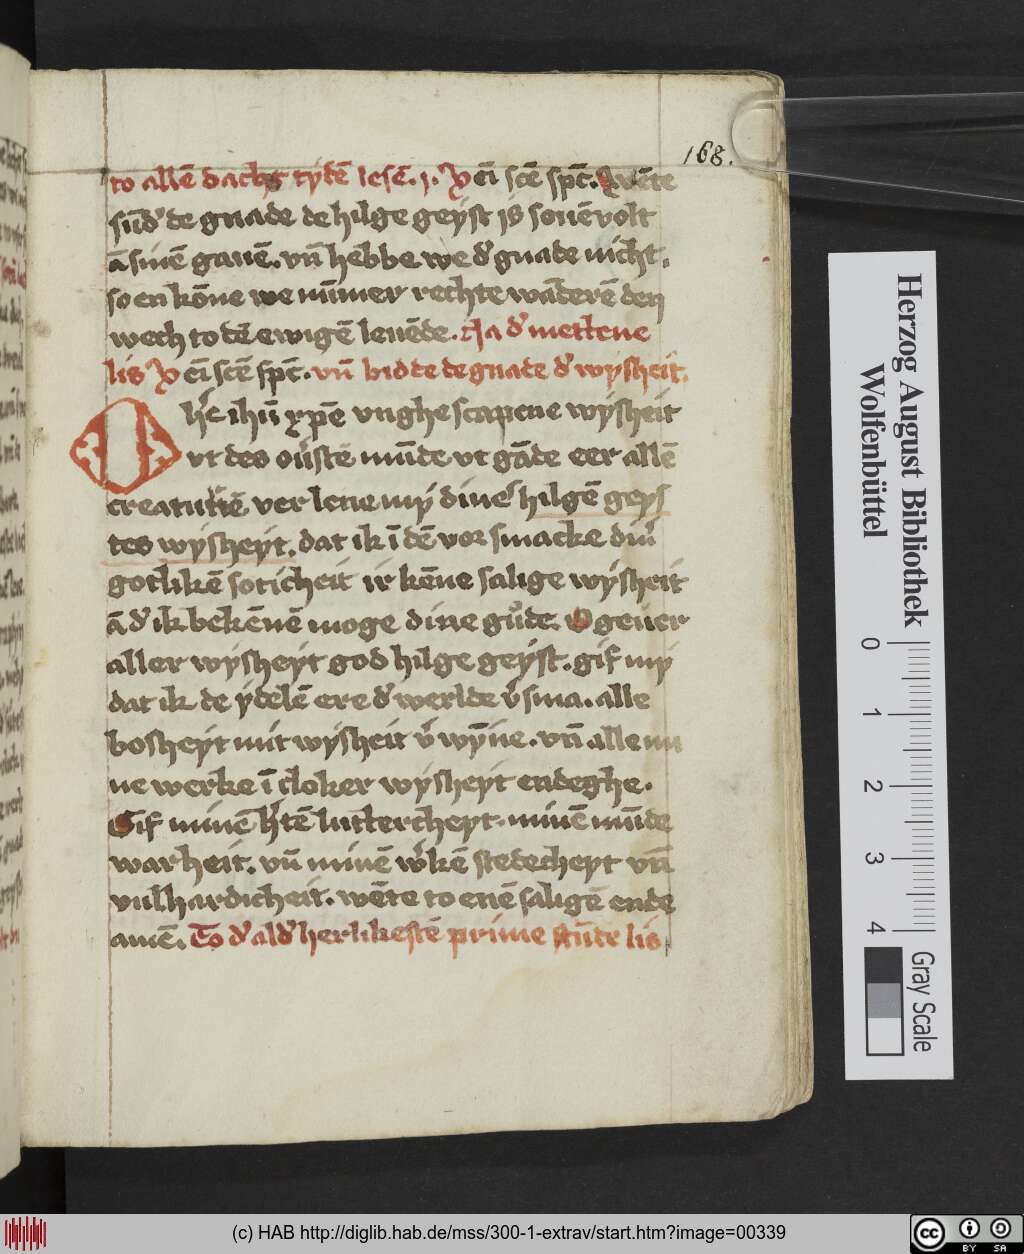 168.
to allē dachs tydē lesē. j. X
eī scē spc̄. Wēte
sūd' de gnade de hilge geyst is souē volt
ā sinē gauē. vn̄ hebbe we d' gnade nicht,
so en kōne we nūmer rechte wāderē den
wech to dē ewigē leuēde. Na d' metten
lis X eī scē spc̄. vn̄ bidde de gnade d' wysheit.
O h'e ihū xpē vnghescapene wysheit
vt des ou'stē mūde vt gāde eer allē
creaturē verlene my diner hilgē geys
tes wysheyt, dat ik ī dē vor smacke diū
gotlikē soticheit irkēne salige wysheit
ā d' ik bekēnē moge dine gude. O geuer
aller wysheyt god hilge geyst. gif my
dat ik de ydelē ere d' werlde v'sma. alle
bosheyt mit wysheit v'wȳne. vn̄ alle mi
ne werke ī cloker wysheyt endeghe.
Gif minē h'tē lutterheyt. minē mūde
warheit. vn̄ minē w'kē stedecheyt vn̄
vulhardicheit. wēte to enē saligē ende
amē. To d' ald' herlikestē prime stūde lis
Herzog August Bibliothek
Wolfenbüttel
0 1 2 3 4
Gray Scale
(c) HAB http://diglib.hab.de/mss/300-1-extrav/start.htm?image=00339
cc BY SA